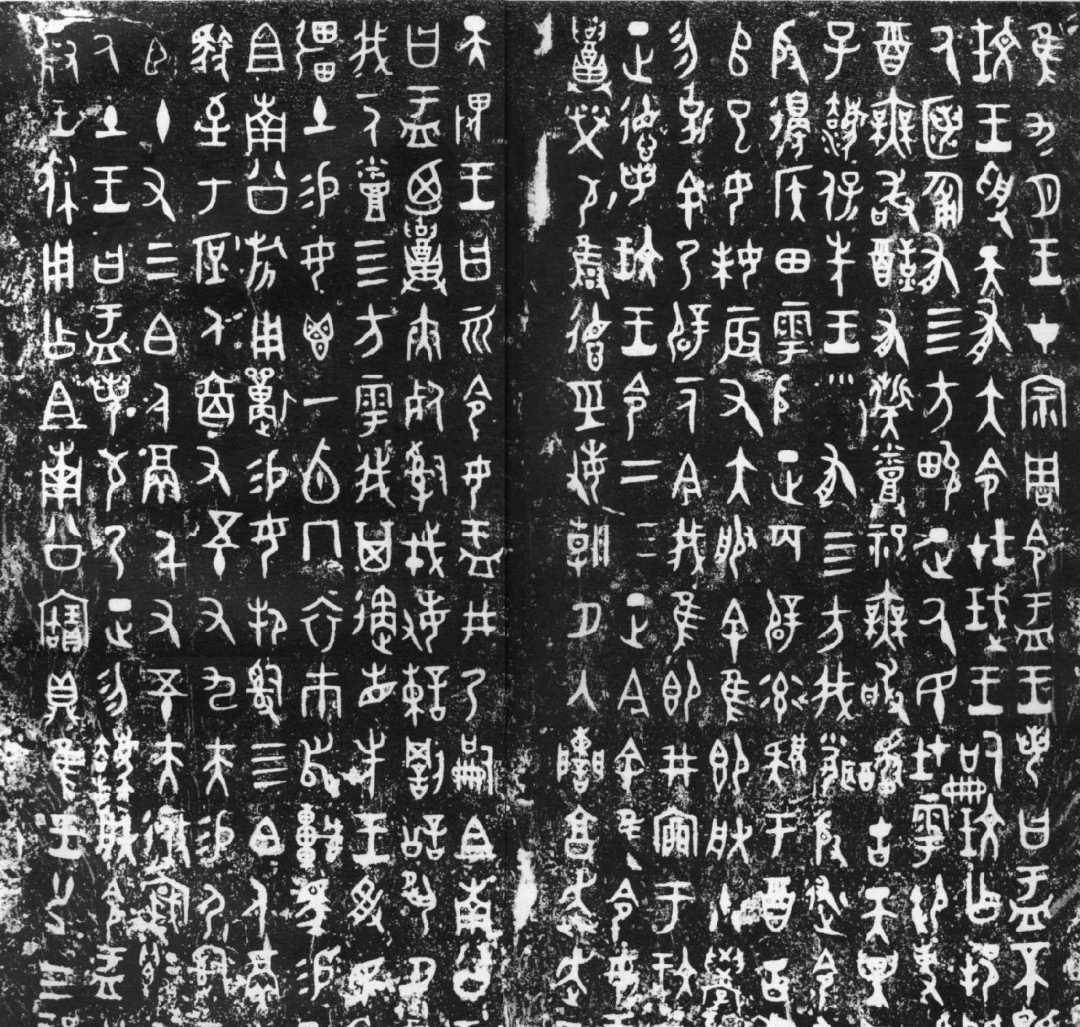 隹九月王才宗周令盂王若曰盂不
玟王受天有大令在珷王嗣玟乍邦
匿匍有四方畯正厥民在雩御事
酉無敢酖有祡烝祀無敢古天異
子灋保先王有四方我聞殷述令
殷邊侯田雩殷正百辟率肄于酉古
𠂤巳女妹辰又大服余隹即朕小學
勿余乃辟一人今我隹即井廩于玟
正德若玟王令二三正今余隹令女
召榮敬雍德經敏朝夕入諫享奔走
天畏王曰令女盂井乃嗣且南公
曰盂廼召夾死司戎敏諫罰訟夙夕
我一人烝四方雩我其遹省先王受民
疆土易女鬯一卣冂衣巿舄車馬易
且南公旂用易女邦司四白人鬲
馭至于庶人六百又五十又九夫易尸司
臣十又三白人鬲千又五十夫
厥土王曰盂若敬乃正勿灋朕令盂
對王休用乍且南公寶鼎隹王廿又三